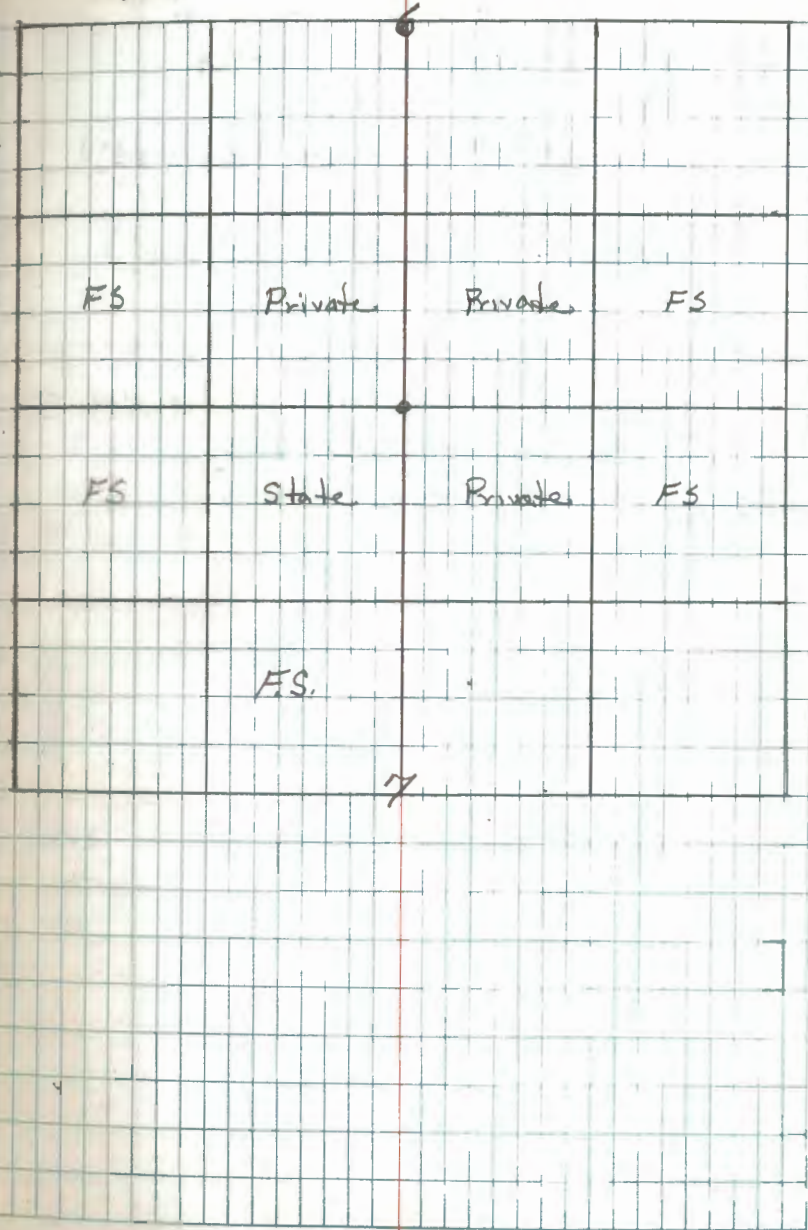 6
FS Private Private FS
FS State Private FS
F.S.
7